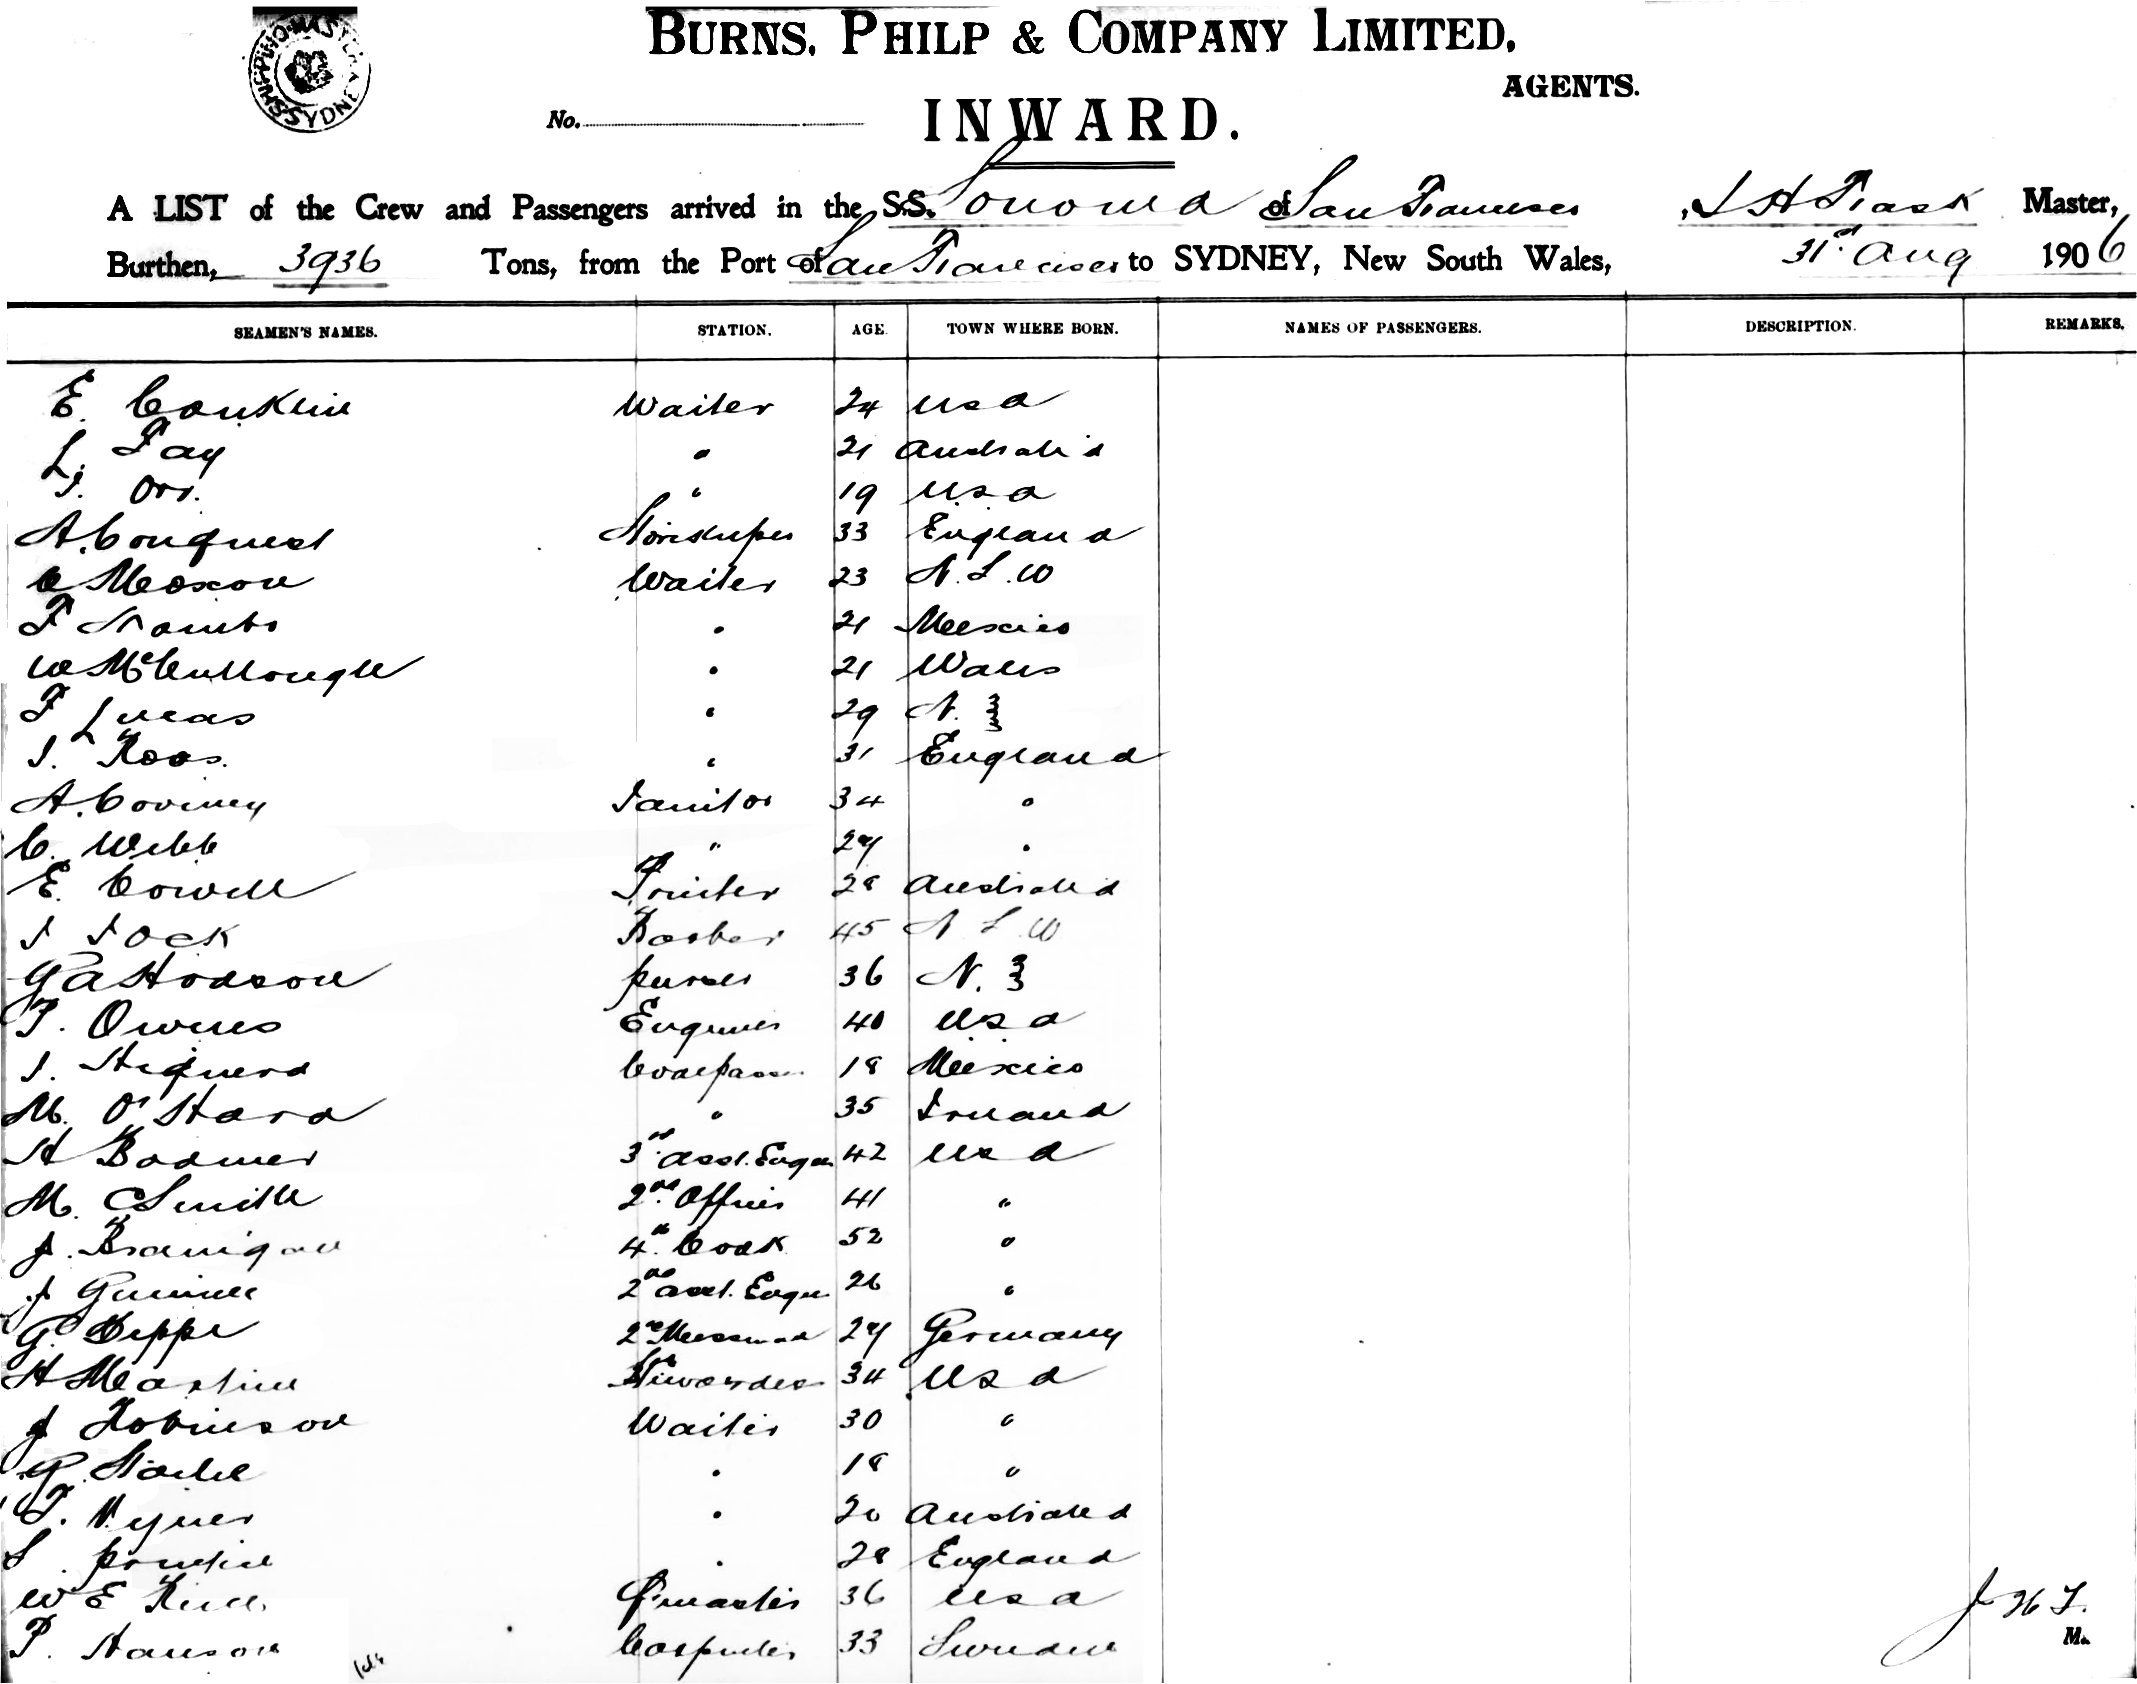 BURNS, PHILP & COMPANY LIMITED,
AGENTS.
SYDNEY
No.
INWARD.
A LIST of the Crew and Passengers arrived in the S.S. Sonoma of San Francisco, J H Trask Master,
Burthen, 3936 Tons, from the Port of San Francisco to SYDNEY, New South Wales, 31st Aug 1906
SEAMEN'S NAMES. STATION. AGE TOWN WHERE BORN. NAMES OF PASSENGERS. DESCRIPTION. REMARKS.
E. Conklin Waiter 24 USA
L. Fay " 21 Australia
I. Orr. " 19 USA
A. Conquest Storekeeper 33 England
C Moxon Waiter 23 N.S.W
F " 21 Mexico
W McCullough " 21 Wales
F Lucas " 29 N.Z
J. Ross. " 31 England
A. Janitor 34 "
C. Webb " 27 "
E. Cowell Printer 28 Australia
J Jock Barber 45 N S W
G A Hodson purser 36 N.Z
T. Owens Engineer 40 USA
J. Higuera Coalpasser 18 Mexico
M. O'Hara " 35 Ireland
H Bodmer 3rd asst. Engr 42 USA
M. C Smith 2nd Officer 41 "
J. Branigan 4th Cook 52 "
J 2nd asst. Engr 26 "
G. Deppe 2nd Messman 27 Germany
H Martin Stewardess 34 USA
J Robinson Waiter 30 "
G. " 18 "
T. Vyner " 20 Australia
S. " 28 England
W E Q'master 36 USA
P. Hanson Carpenter 33 Sweden
J H T.
M.